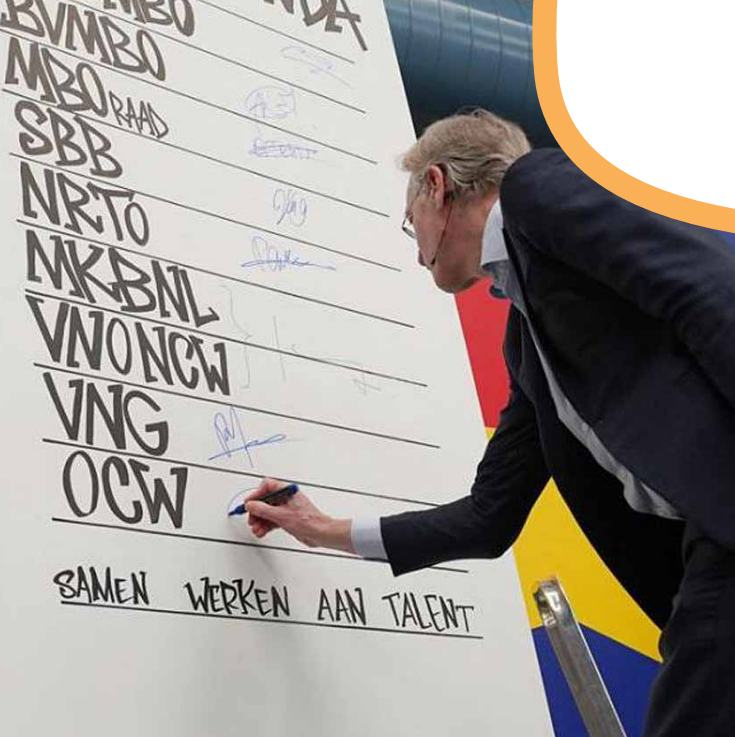 MBO
BVMBO
MBO RAAD
SBB
NRTO
MKBNL
VNONCW
VNG
OCW
SAMEN WERKEN AAN TALENT